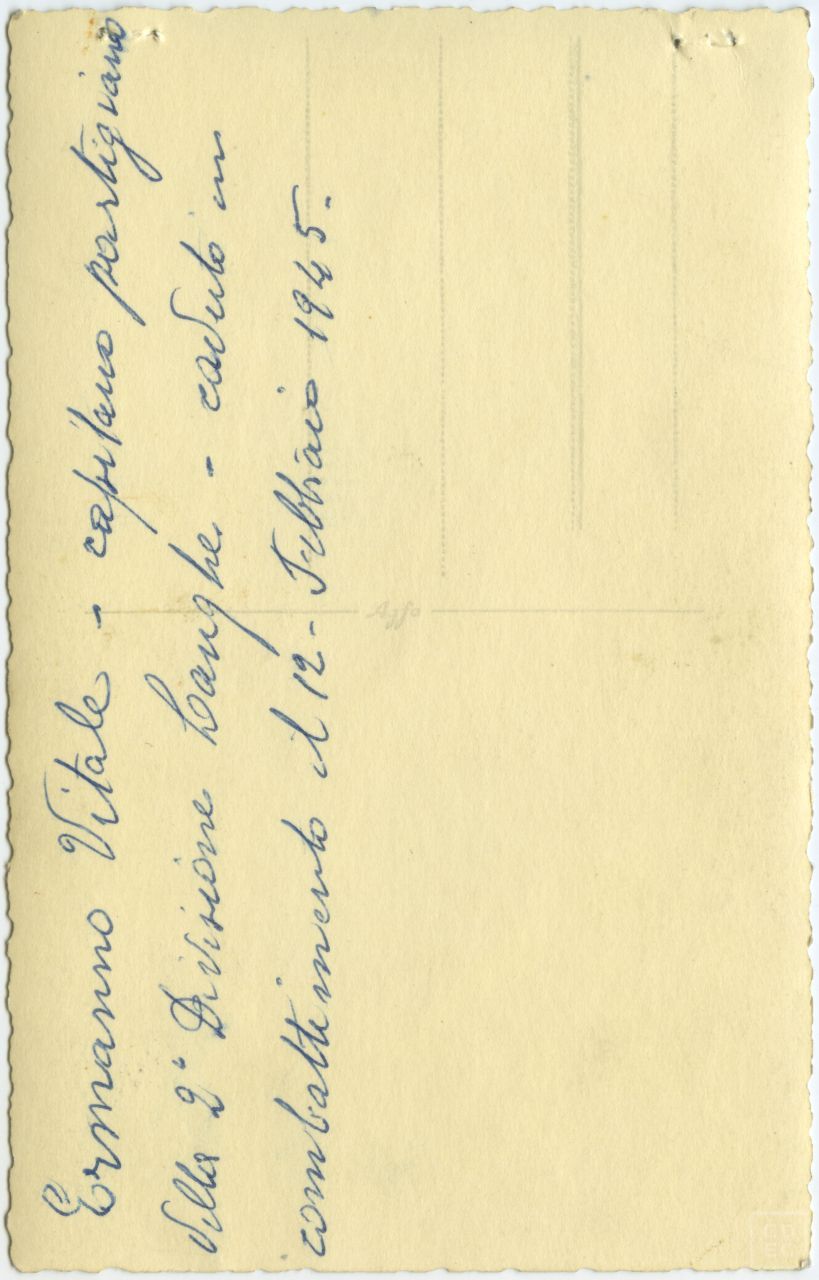 Ermanno Vitale - capitano partigiano
della 2ª Divisione Langhe - caduto in
combattimento il 12 - Febbraio 1945.
Azfo
CD
EC